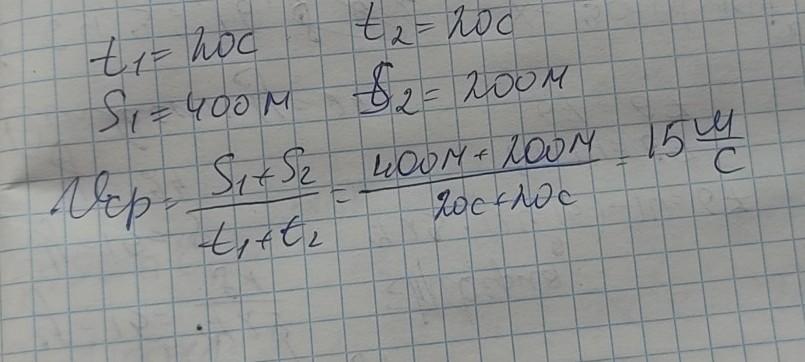 t₁ = 20с t₂ = 20с
S₁ = 400м S₂ = 200м
Vср = (S₁ + S₂)/(t₁ + t₂) = (400м + 200м)/(20с + 20с) = 15 м/с